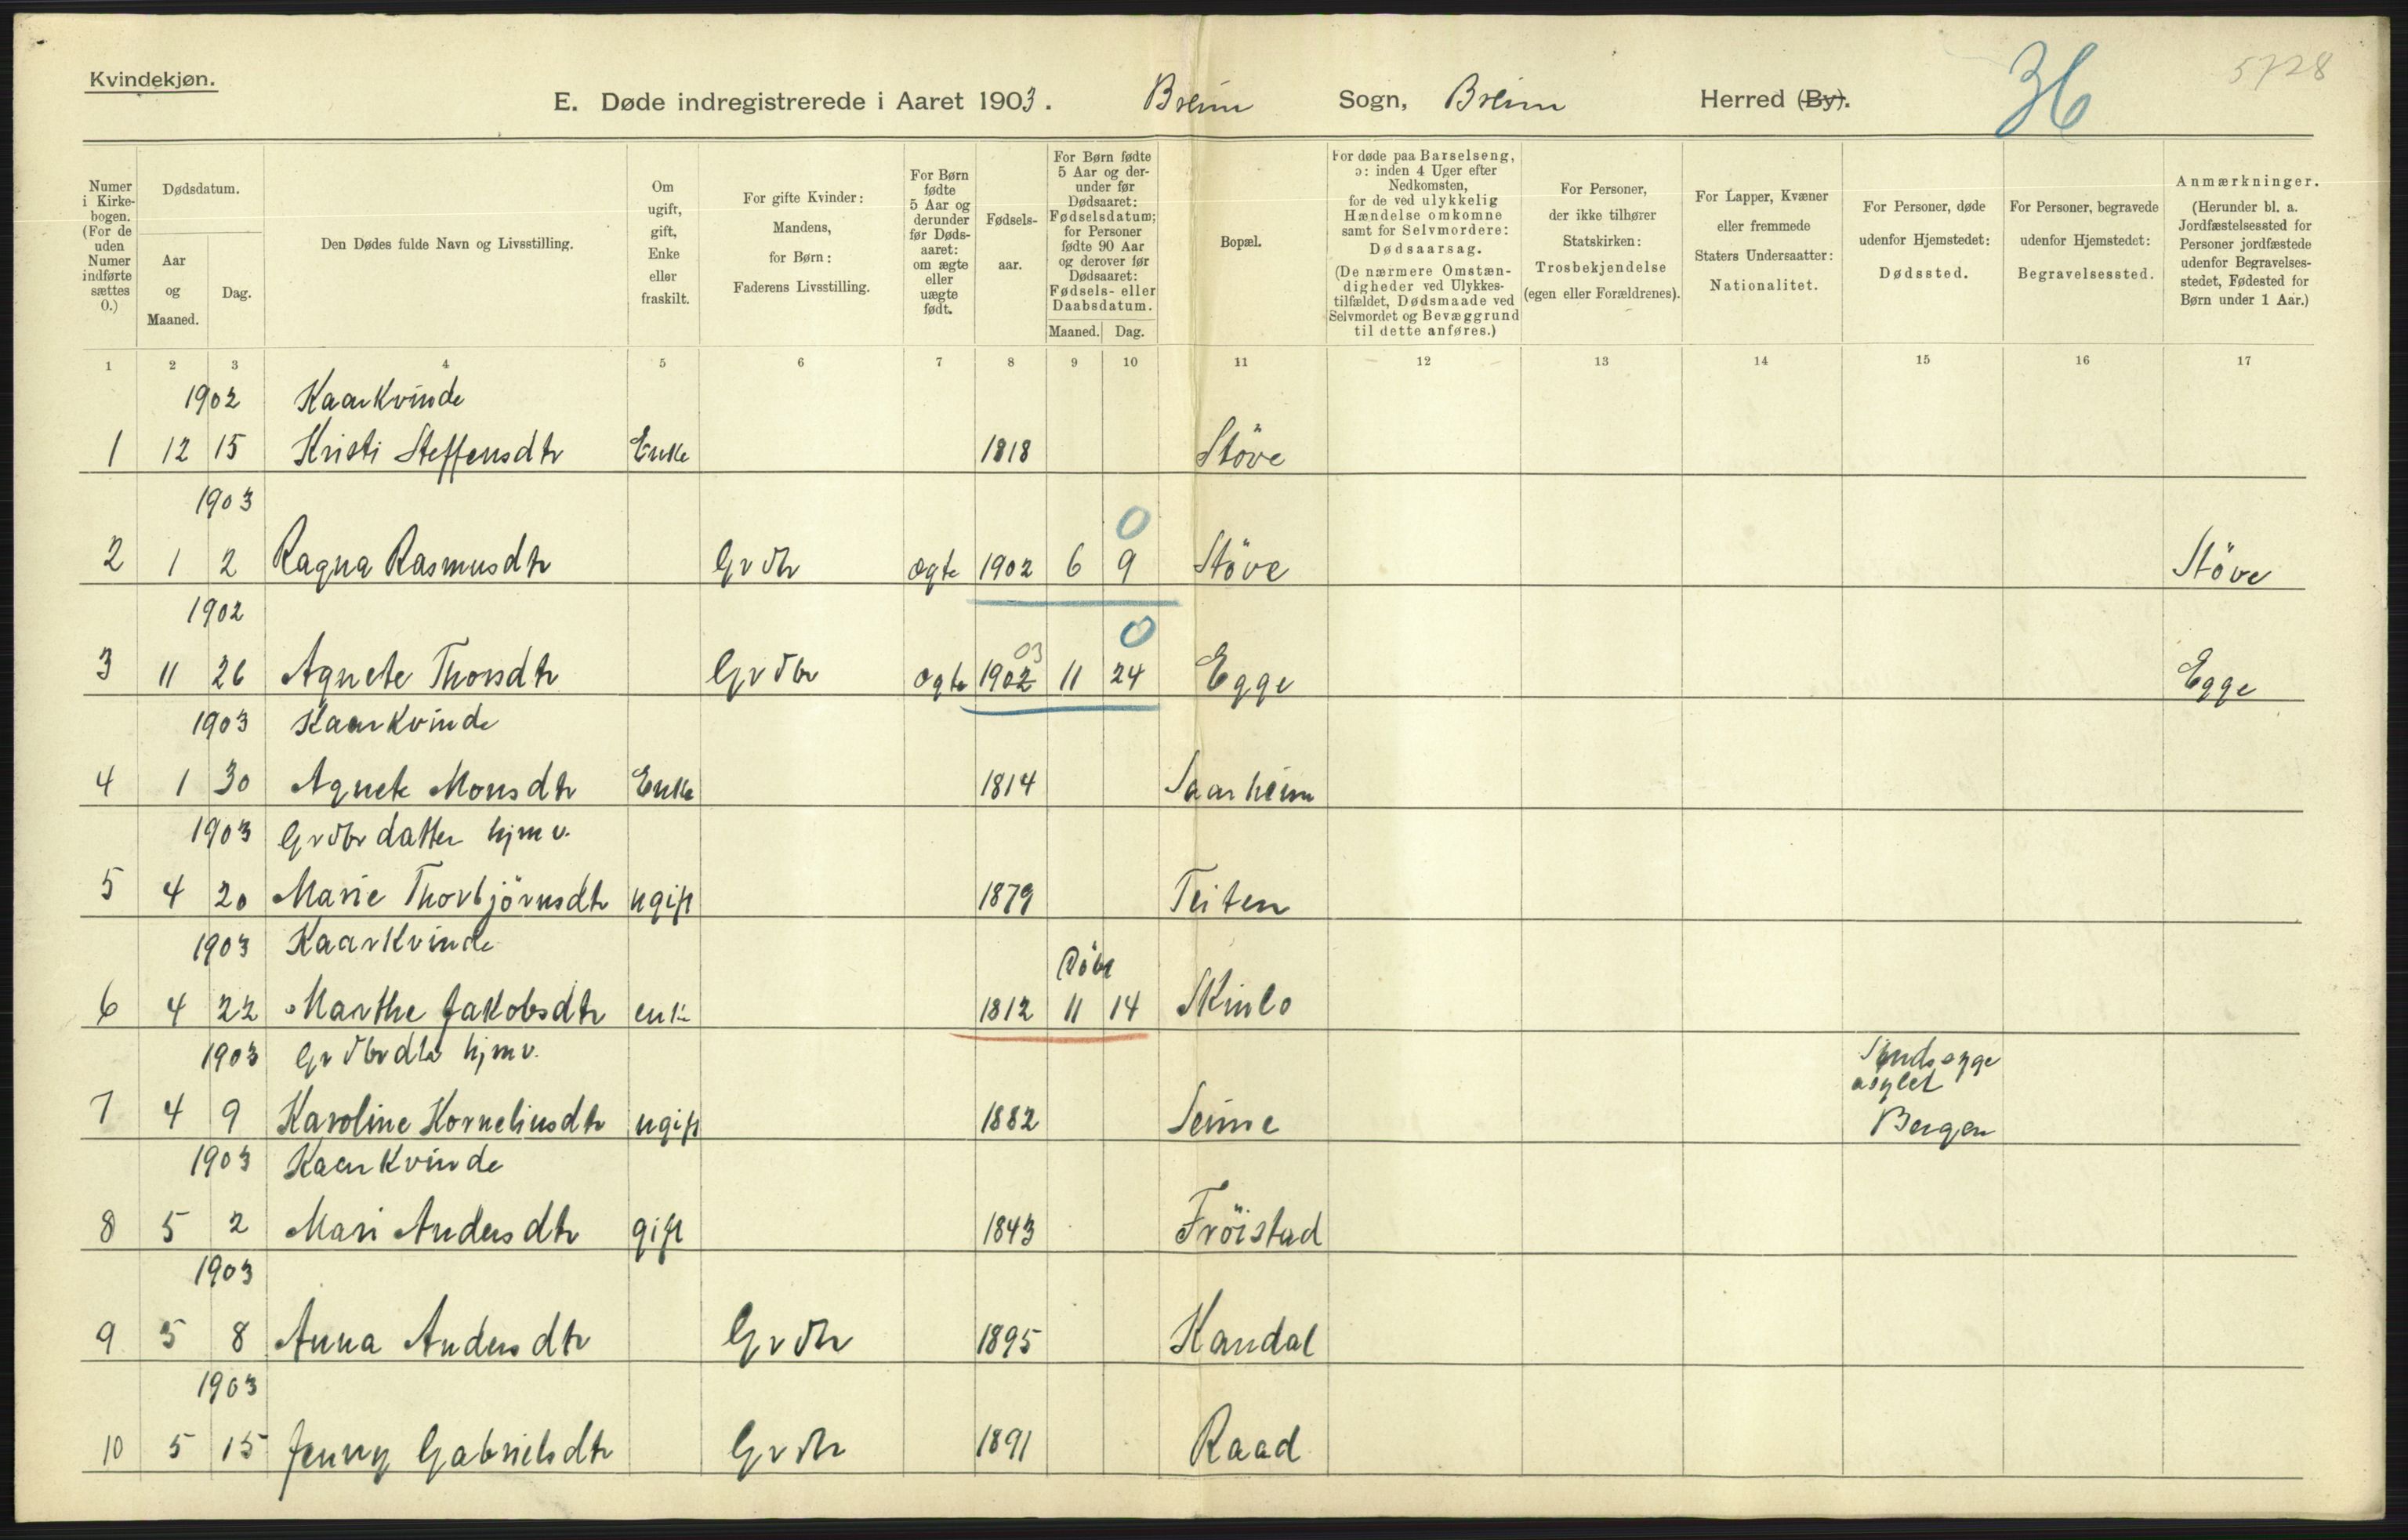 Kvindekjøn.
E. Døde indregistrerede i Aaret 1903. Breim Sogn, Breim Herred (By).
36
5728
Numer i Kirke-bogen. (For de uden Numer indførte sættes 0.)
Dødsdatum.
Aar og Maaned.
Dag.
Den Dødes fulde Navn og Livsstilling.
Om ugift, gift, Enke eller fraskilt.
For gifte Kvinder: Mandens, for Børn: Faderens Livsstilling.
For Børn fødte 5 Aar og derunder før Døds-aaret: om ægte eller uægte født.
Fødsels-aar.
For Børn fødte 5 Aar og der-under før Dødsaaret: Fødselsdatum; for Personer fødte 90 Aar og derover før Dødsaaret: Fødsels- eller Daabsdatum.
Maaned. Dag.
Bopæl.
For døde paa Barselseng, ɔ: inden 4 Uger efter Nedkomsten, for de ved ulykkelig Hændelse omkomne samt for Selvmordere: Dødsaarsag. (De nærmere Omstæn-digheder ved Ulykkes-tilfældet, Dødsmaade ved Selvmordet og Bevæggrund til dette anføres.)
For Personer, der ikke tilhører Statskirken: Trosbekjendelse (egen eller Forældrenes).
For Lapper, Kvæner eller fremmede Staters Undersaatter: Nationalitet.
For Personer, døde udenfor Hjemstedet: Dødssted.
For Personer, begravede udenfor Hjemstedet: Begravelsessted.
Anmærkninger. (Herunder bl. a. Jordfæstelsessted for Personer jordfæstede udenfor Begravelses-stedet, Fødested for Børn under 1 Aar.)
1 2 3 4 5 6 7 8 9 10 11 12 13 14 15 16 17
1902 Kaarkvinde
1 12 15 Kristi Steffensdtr Enke 1818 Støve
1903 0
2 1 2 Ragna Rasmusdtr Grdbr ægte 1902 6 9 Støve Støve
1902 0
03
3 11 26 Agnete Thorsdtr Grdbr ægte 1902 11 24 Egge Egge
1903 Kaarkvinde
4 1 30 Agnete Monsdtr Enke 1814 Saarheim
1903 Grdbrdatter hjmv.
5 4 20 Marie Thorbjörnsdtr ugift 1879 Teiten
1903 Kaarkvinde
6 4 22 Marthe Jakobsdtr enke 1812 11 14 Skinlo
1903 Grdbrdtr hjmv.
asylet
7 4 9 Karoline Korneliusdtr ugift 1882 Seime Bergen
1903 Kaarkvinde
8 5 2 Mari Andersdtr gift 1843 Fröistad
1903
9 5 8 Anna Andersdtr Grdbr 1895 Kandal
1903
10 5 15 Jenny Gabrielsdtr Grdbr 1891 Raad